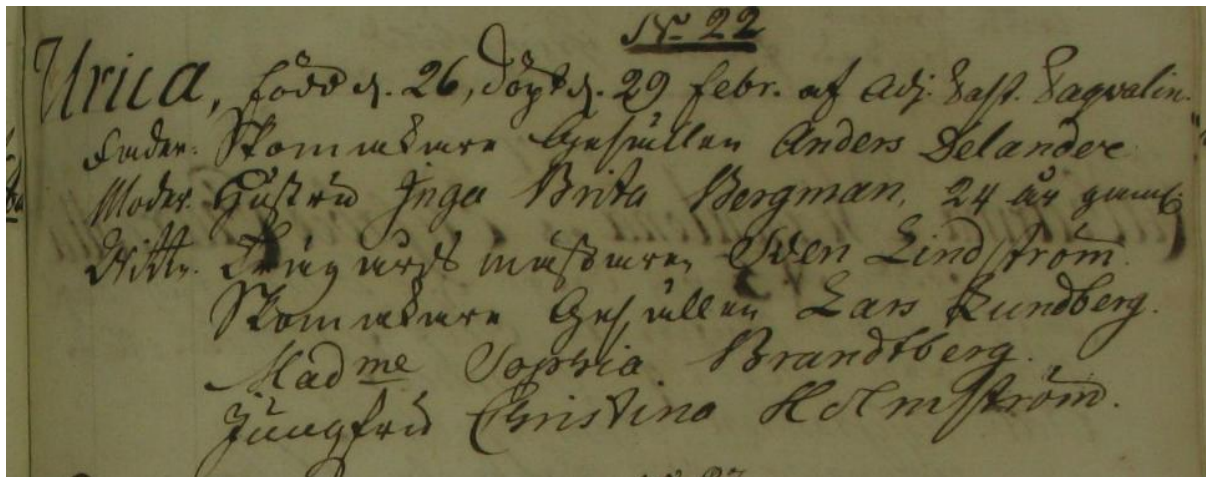 No 22
Ulrica, född d. 26, döpt d. 29 Febr. af Adj. Past. Fagvalin.
Fader. Skomakare Gesällen Anders Delander
Moder. Hustru Inga Brita Bergman, 24 år gammal
Vittn. Trägårds mästaren Sven Lindström.
Skomakare Gesällen Lars Lundberg.
Madme Sophia Brandtberg.
Jungfru Christina Holmström.